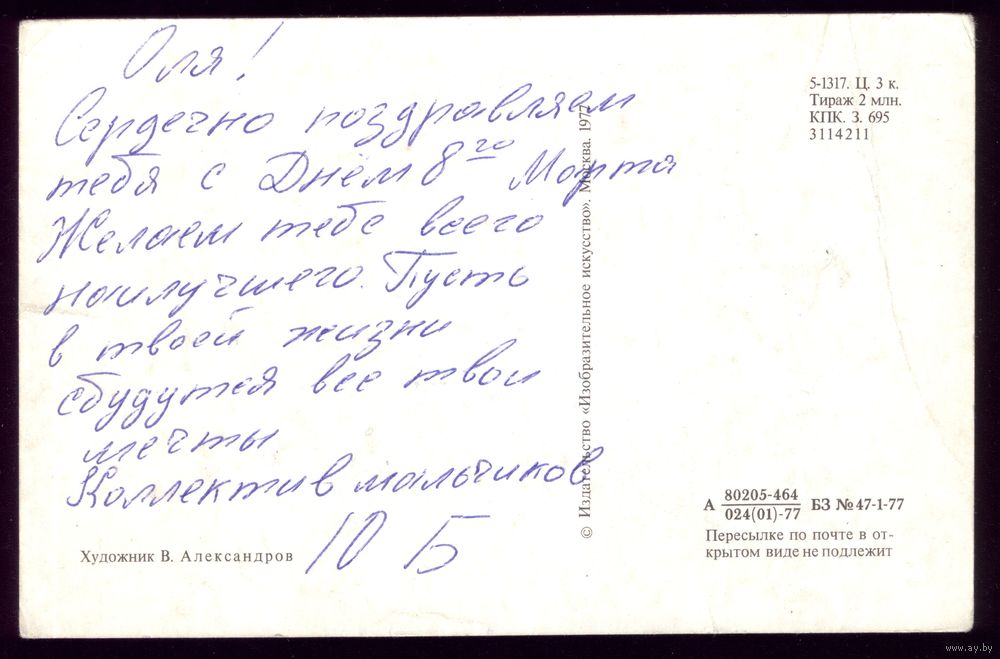 Оля!
Сердечно поздравляем
тебя с Днём 8го Марта
Желаем тебе всего
наилучшего. Пусть
в твоей жизни
сбудутся все твои
мечты
Коллектив мальчиков
10 Б
Художник В. Александров
© Издательство «Изобразительное искусство». Москва. 1977
5-1317. Ц. 3 к.
Тираж 2 млн.
КПК. З. 695
3114211
А 80205-464 БЗ № 47-1-77
024(01)-77
Пересылке по почте в от-
крытом виде не подлежит
www.ay.by